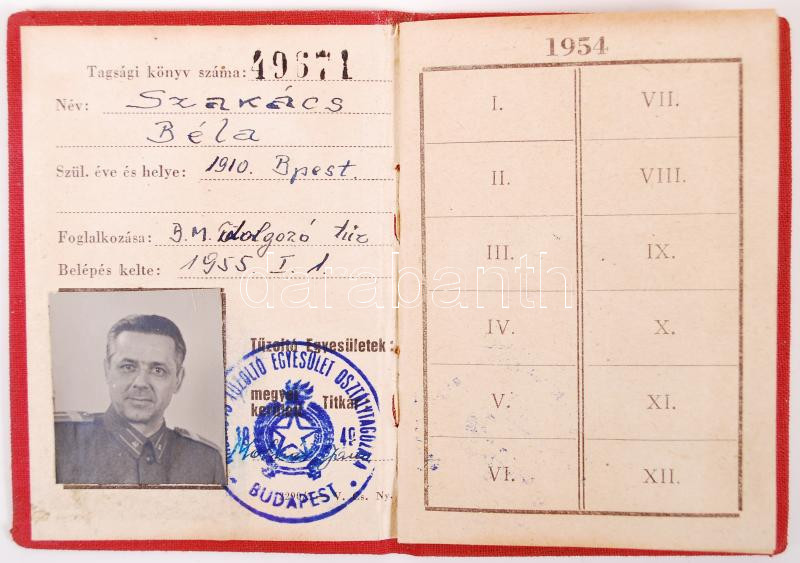 Tagsági könyv száma: 49671
Név: Szakács
Béla
Szül. éve és helye: 1910. Bpest.
Foglalkozása: B.M. dolgozó tűz
Belépés kelte: 1955. I. 1.
Tűzoltó Egyesületek:
megyei
kerületi Titkár
TŰZOLTÓ EGYESÜLET OSZTÁLYTAGOZÓDA
18 49
• BUDAPEST •
V. Cs. Ny.
1954
I. VII.
II. VIII.
III. IX.
IV. X.
V. XI.
VI. XII.
darabanth